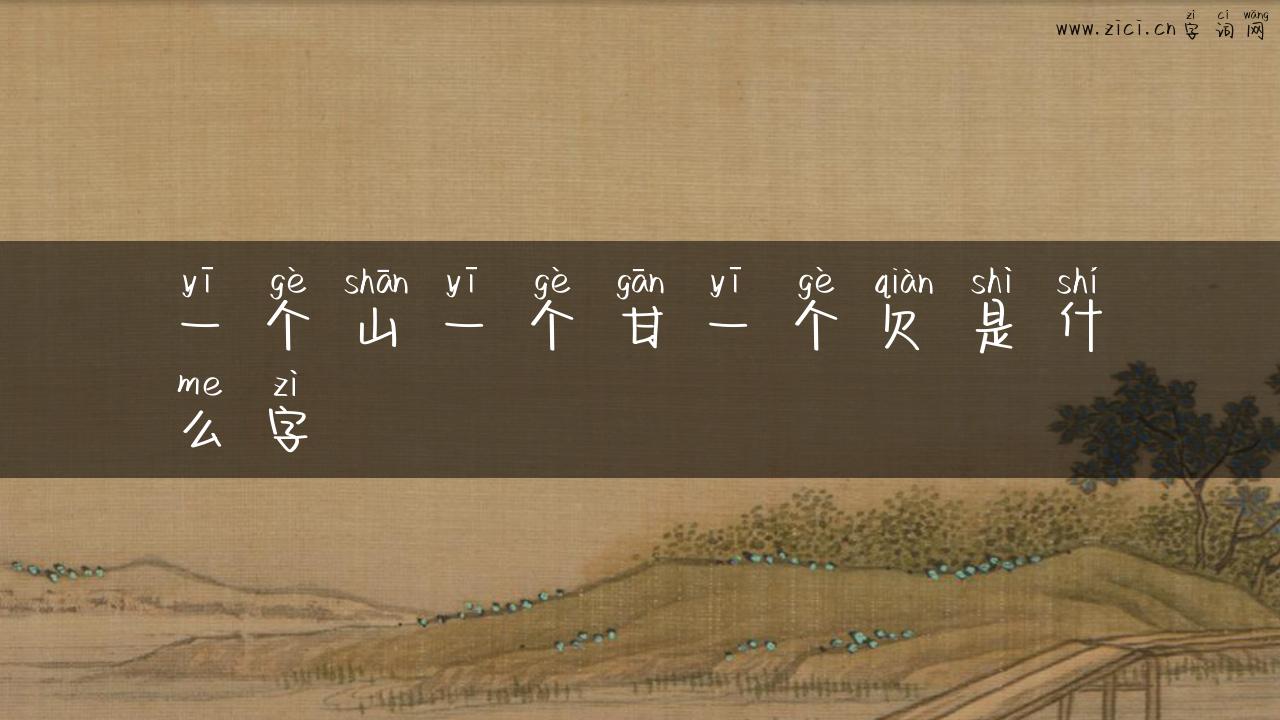 zì cí wǎng
www.zici.cn字词网
yī gè shān yī gè gān yī gè qiàn shì shí
一个山一个甘一个欠是什
me zì
么字